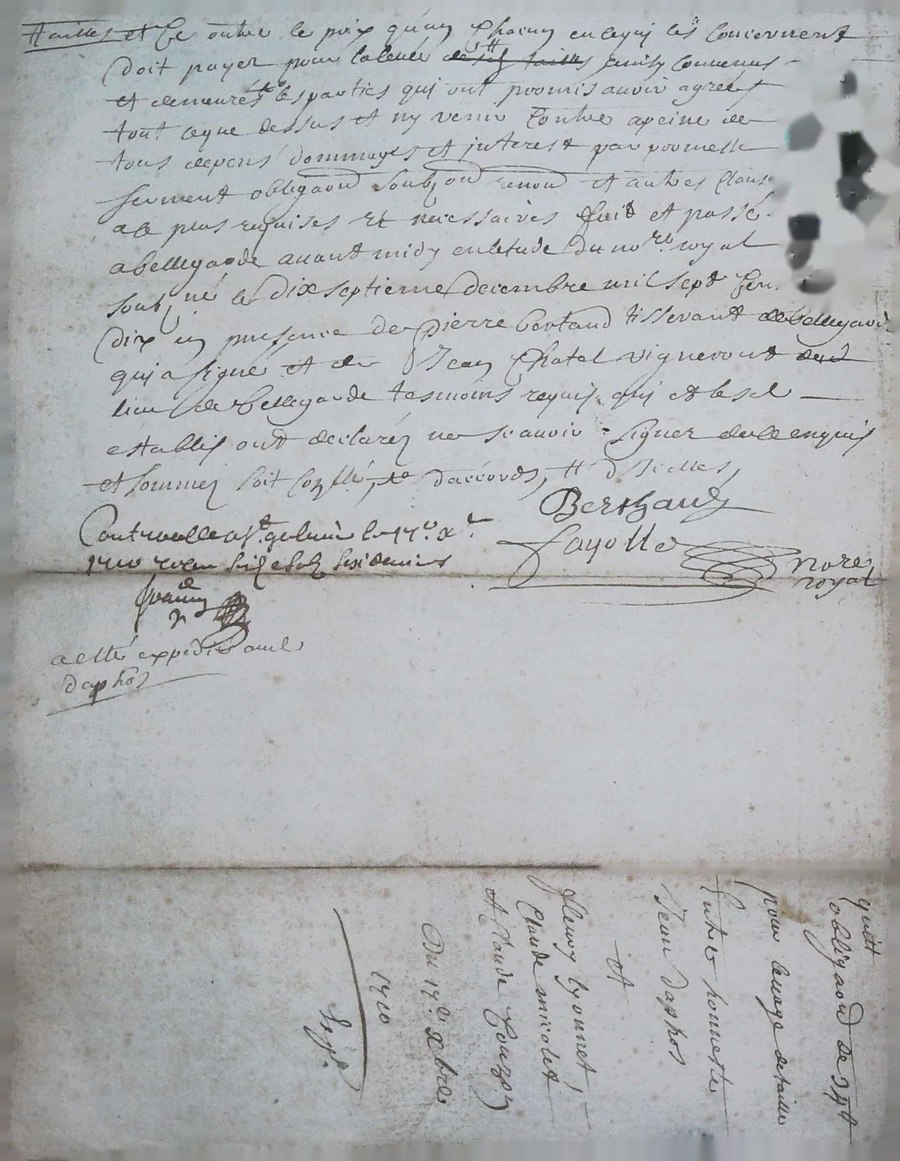 tailles et Ce outre le prix qu'un Chacun en ce qui les Concernent
doit payer pour la levée desd tailles Convenus
et demeurés les parties qui ont promis avoir agrées
tout ceque dessus et ny venir Contre apeine de
tous depens dommages et interest par promesse
serment obligaon soubzon renond et autres Claus
a ce plus requises et necessaires faid et passé
a bellegarde avant midy en letude du nore royal
soubz né le Dix septieme decembre mil sept Cen
dix en presence de pierre bertaud tisserant de bellegard
qui a signe et de Jean Chatel vigneront dud
lieu de bellegarde tesmoins requis qui et lesd
establis ont declaréz ne scavoir signer de ce enquis
et sommez soit Conllé, daccords, d Icelles,
Berthaud
Controolle a st galmier le 17e xre
Fayolle
1710 six deniers
nore
royal
a esté expedié aud
daphos
quitt
obligaon de 34tt
pour levage de taille
Entre honneste
Jean daphos
et
fleury lyonnet,
Claude micolet
et Claude Couzon
Du 17e xbre
1710